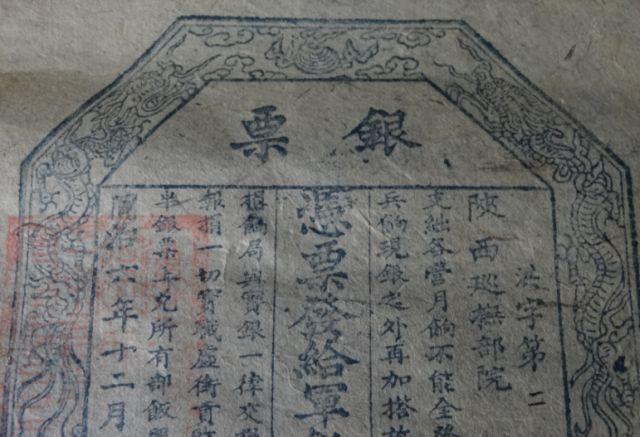 銀票
洪字第二
陝西巡撫部院
支絀各營月餉不能全發
兵餉現銀之外再加搭放
憑票發給軍
捐餉局與實銀一律交
報捐一切實職虛銜貢監
半銀票上兌所有部飯照
同治六年十二月